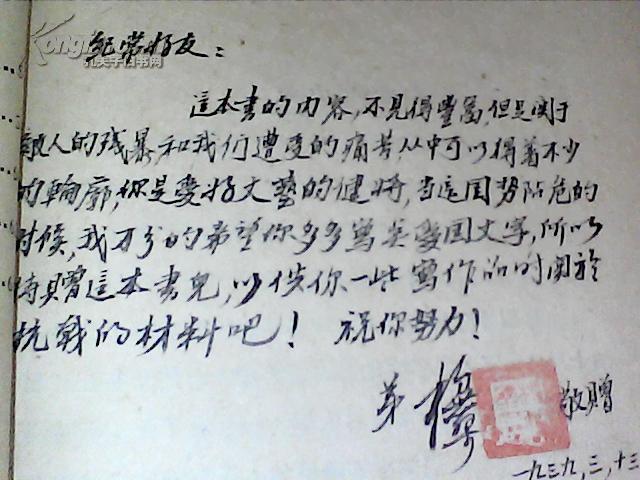 紀常好友：
這本書的内容，不見得豐富，但是関于
敵人的残暴，和我们遭受的痛苦，从中可以得着不少
的輪廓，你是愛好文藝的健將，當這国势阽危的
时候，我万分的希望你多多寫些愛国文字，所以
特贈這本書兒，以供你一些寫作品时関於
抗戰的材料吧！祝你努力！
弟 敬贈
一九三九，三，十三
孔夫子旧书网